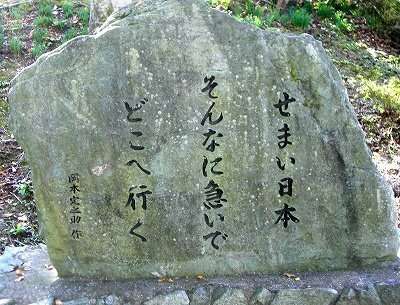 せまい日本
そんなに急いで
どこへ行く
岡本定之助 作